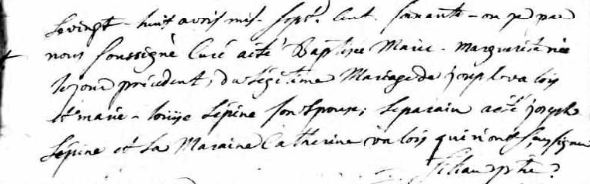 Le vingt-huit avril mil sept cent soixante-on par
nous soussigné Curé a été Baptisee Marie-Marguerite née
le jour précédent, du Légitime Mariage de joseph valois
et marie-louise Lépine son Epouse; le parain a été joseph
Lépine et La Maraine Catherine valois qui n'ont sçu signer
ptre